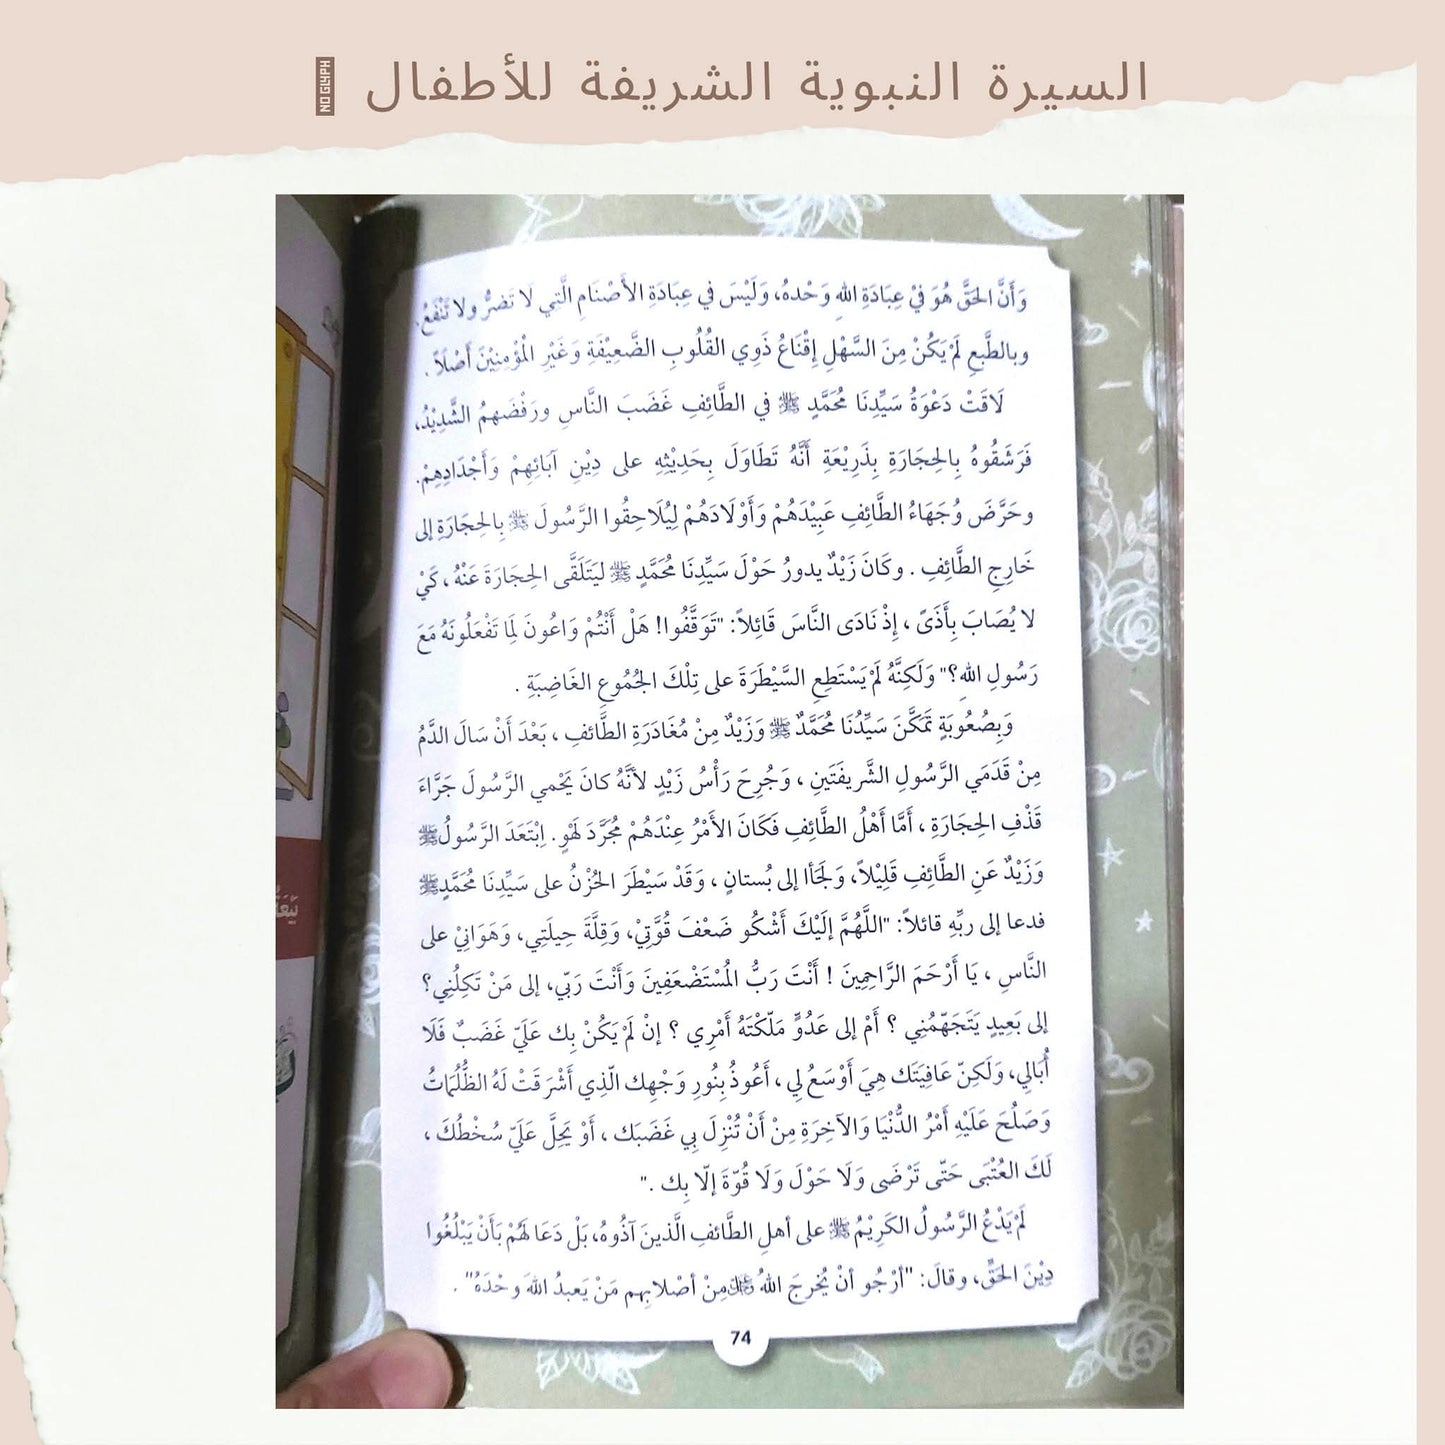 السيرة النبوية الشريفة للأطفال
NO GLYPH
وَأَنَّ الحَقَّ هُوَ فيْ عِبَادَةِ اللهِ وَحْدهُ، وَلَيْسَ في عِبَادَةِ الأَصْنَامِ الَّتي لا تَضرُّ ولا تَنْفَعُ.
وبالطَّبعِ لَمْ يَكُنْ مِنَ السَّهْلِ إِقْنَاعُ ذَوِي القُلُوبِ الضَّعِيْفَةِ وَغَيْرِ الْمُؤْمِنِيْنَ أَصْلاً .
لَاقَتْ دَعْوَةُ سَيِّدِنَا مُحَمَّدٍ ﷺ في الطَّائِفِ غَضَبَ النَّاسِ ورَفْضَهمُ الشَّدِيْدُ،
فَرَشَقُوهُ بِالحِجَارَةِ بِذَرِيْعَةِ أَنَّهُ تَطَاوَلَ بِحَدِيْثِهِ على دِيْنِ آبَائِهِمْ وَأَجْدَادِهِمْ.
وحَرَّضَ وُجَهَاءُ الطَّائِفِ عَبِيْدَهُمْ وَأَوْلَادَهُمْ لِيُلَاحِقُوا الرَّسُولَ ﷺ بِالحِجَارَةِ إلى
خَارِجِ الطَّائِفِ . وكَانَ زَيْدٌ يدورُ حَوْلَ سَيِّدِنَا مُحَمَّدٍ ﷺ ليَتَلَقَّى الحِجَارَةَ عَنْهُ ، كَيْ
لا يُصَابَ بِأَذَىً ، إِذْ نَادَى النَّاسَ قَائِلاً: "تَوَقَّفُوا! هَلْ أَنْتُمْ وَاعُونَ لِمَا تَفْعَلُونَهُ مَعَ
رَسُولِ اللهِ؟" وَلَكِنَّهُ لَمْ يَسْتَطِعِ السَّيْطَرَةَ على تِلْكَ الجُمُوعِ الغَاضِبَةِ .
وَبِصُعُوبَةٍ تَمَكَّنَ سَيِّدُنَا مُحَمَّدٌ ﷺ وَزَيْدٌ مِنْ مُغَادَرَةِ الطَّائفِ ، بَعْدَ أَنْ سَالَ الدَّمُ
مِنْ قَدَمَي الرَّسُولِ الشَّرِيفَتَينِ ، وَجُرِحَ رَأْسُ زَيْدٍ لأنَّهُ كانَ يَحْمي الرَّسُولَ جَرَّاءَ
قَذْفِ الحِجَارَةِ ، أَمَّا أَهْلُ الطَّائِفِ فَكَانَ الأَمْرُ عِنْدَهُمْ مُجَرَّدَ لَهْوٍ . اِبْتَعَدَ الرَّسُولُ ﷺ
وَزَيْدٌ عَنِ الطَّائِفِ قَلِيْلاً، وَلَجَأا إلى بُستانٍ ، وَقَدْ سَيْطَرَ الحُزْنُ على سَيِّدِنَا مُحَمَّدٍ ﷺ
فدعا إلى ربِّهِ قائلاً: "اللَّهُمَّ إلَيْكَ أَشْكُو ضَعْفَ قُوَّتِيْ، وَقِلَّةَ حِيلَتِي، وَهَوَانِيْ على
النَّاسِ ، يَا أَرْحَمَ الرَّاحِمِينَ ! أَنْتَ رَبُّ المُسْتَضْعَفِينَ وَأَنْتَ رَبّي، إلى مَنْ تَكِلُنِي؟
إلى بَعِيدٍ يَتَجَهّمُنِي ؟ أَمْ إلى عَدُوٍّ مَلّكْتَهُ أَمْرِي ؟ إنْ لَمْ يَكُنْ بِك عَلَيّ غَضَبٌ فَلَا
أُبَالِي، وَلَكِنّ عَافِيَتَك هِيَ أَوْسَعُ لِي ، أَعُوذُ بِنُورِ وَجْهِك الّذِي أَشْرَقَتْ لَهُ الظُّلُمَاتُ
وَصَلُحَ عَلَيْهِ أَمْرُ الدُّنْيَا وَالآخِرَةِ مِنْ أَنْ تُنْزِلَ بِي غَضَبَك ، أَوْ يَحِلَّ عَلَيّ سُخْطُكَ ،
لَكَ العُتْبَى حَتّى تَرْضَى وَلَا حَوْلَ وَلَا قُوّةَ إلّا بِك ."
لَمْ يَدْعُ الرَّسُولُ الكَرِيْمُ ﷺ على أهلِ الطَّائفِ الَّذينَ آذُوهُ، بَلْ دَعَا لَهُمْ بَأَنْ يَبْلُغُوا
دِيْنَ الحَقِّ، وقالَ: "أرْجُو أنْ يُخرِجَ اللهُ مِنْ أصْلابِهم مَنْ يَعبدُ اللهَ وحْدَهُ" .
74